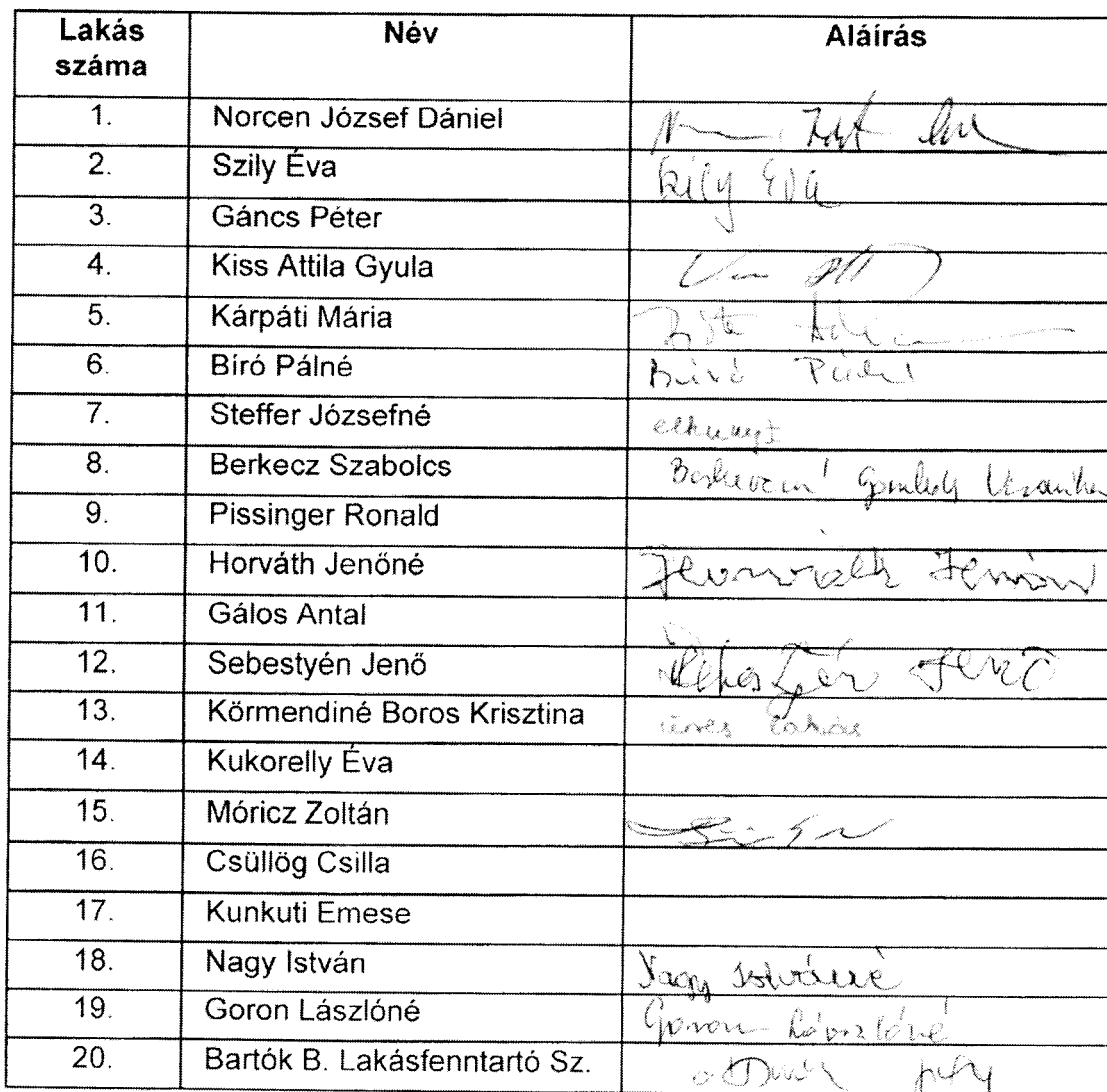 Lakás száma Név Aláírás
1. Norcen József Dániel
2. Szily Éva Szily Éva
3. Gáncs Péter
4. Kiss Attila Gyula
5. Kárpáti Mária
6. Bíró Pálné Bíró Pálné
7. Steffer Józsefné elhunyt
8. Berkecz Szabolcs
9. Pissinger Ronald
10. Horváth Jenőné Horváth Jenőné
11. Gálos Antal
12. Sebestyén Jenő Sebestyén Jenő
13. Körmendiné Boros Krisztina üres lakás
14. Kukorelly Éva
15. Móricz Zoltán
16. Csüllög Csilla
17. Kunkuti Emese
18. Nagy István Nagy Istvánné
19. Goron Lászlóné Goron Lászlóné
20. Bartók B. Lakásfenntartó Sz.